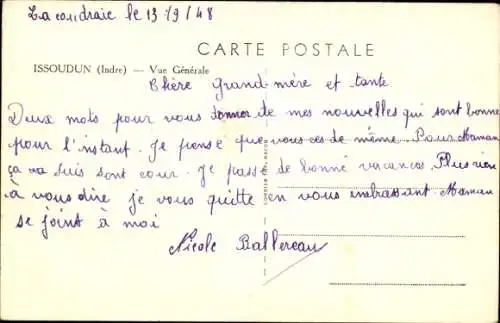 La coudraie le 13/9/48
CARTE POSTALE
ISSOUDUN (Indre) — Vue Générale
Chère grand mère et tante
Deux mots pour vous donner de mes nouvelles qui sont bonne
pour l'instant. Je pense que vous ces de même. Pour Maman
ça va suis sont cour. Je pass de bonné vacances. Plus rien
à vous dire je vous quitte en vous embrassant Maman
se joint à moi
Nicole Ballereau